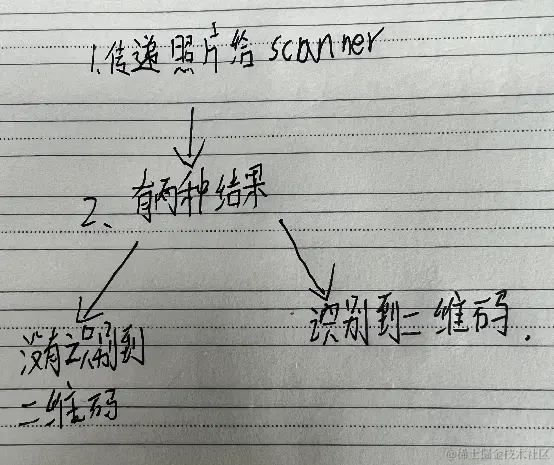 1.传递照片给scanner
2、有两种结果
没有识别到
二维码
识别到二维码.
@稀土掘金技术社区